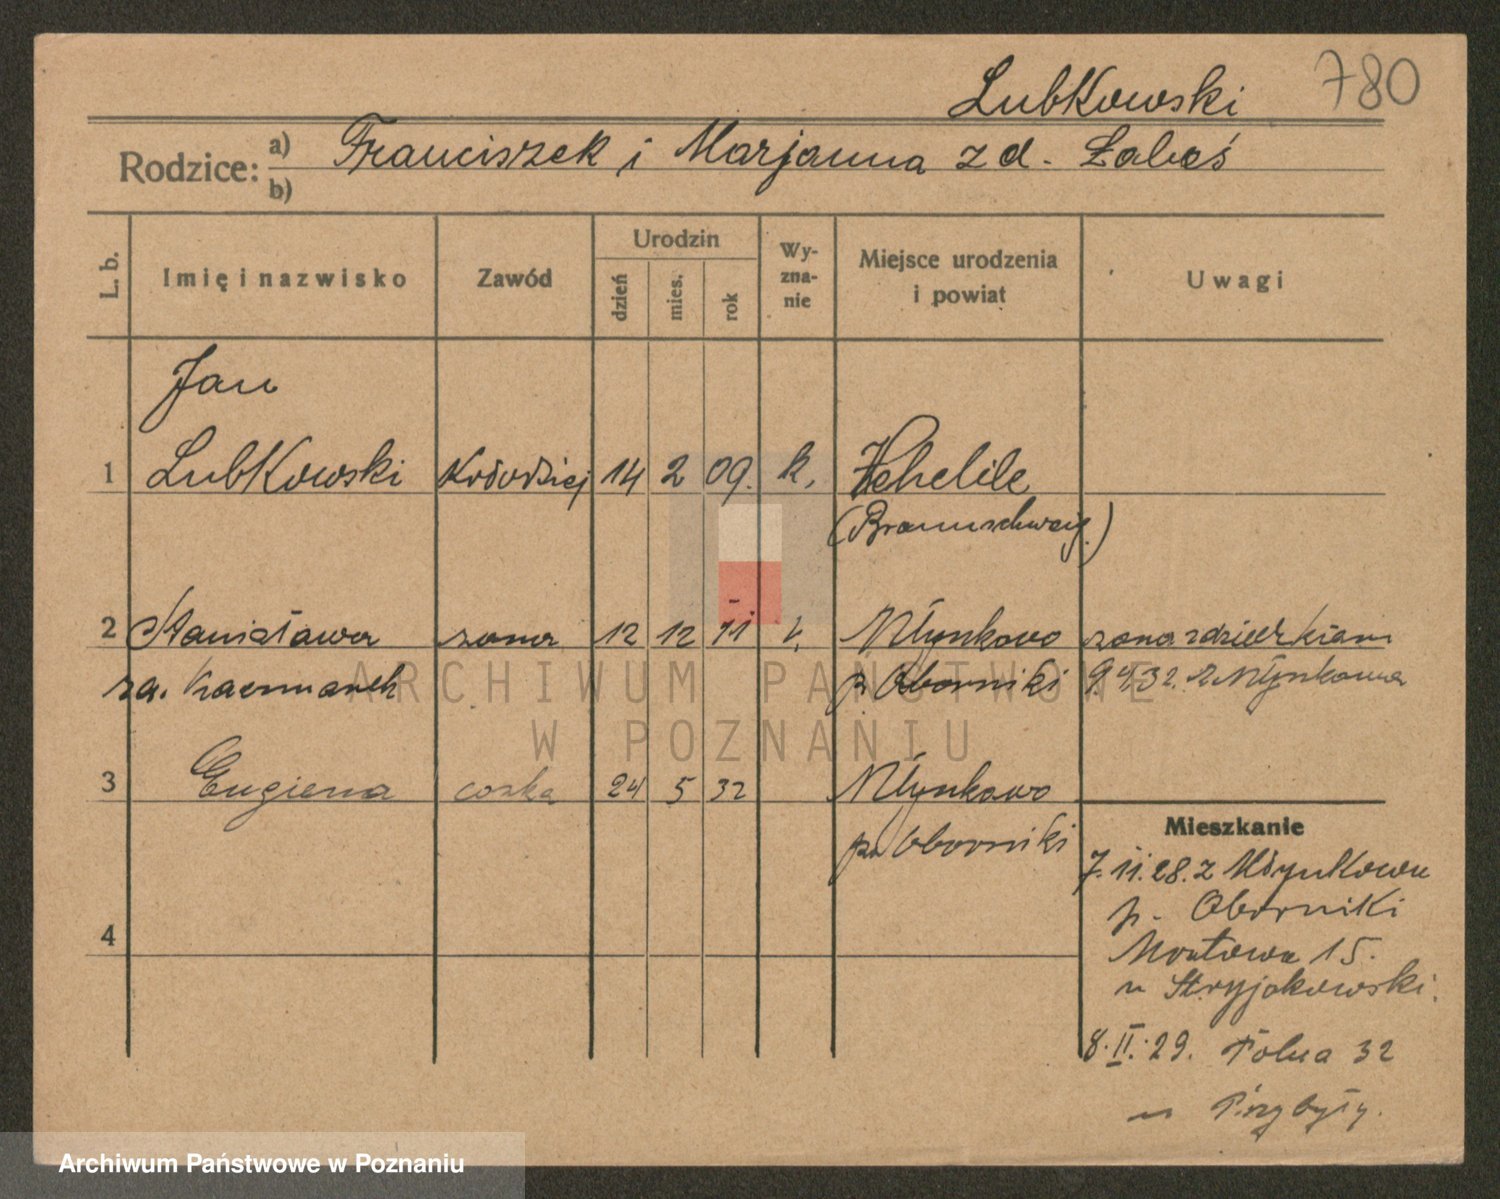 Lubkowski 780
Rodzice: a) Franciszek i Marjanna z d. Łaboś
b)
L. b. Imię i nazwisko Zawód Urodzin Wy-zna-nie Miejsce urodzenia i powiat Uwagi
dzień mies. rok
Jan
1 Lubkowski Kołodziej 14 2 09. k.
(Braunschweig.)
2 Stanisława żona 12 12 11 k. Młynkowo żona z dzieckiem
za. Kaczmarek p. Oborniki 9.9.32. z Młynkowa
3 Eugiena córka 24 5 32 Młynkowo
pw Oborniki
Mieszkanie
7.11.28. z Młynkowa
p. Oborniki
4
Mostowa 15.
u Stryjakowski.
8.II.29. Polna 32
u Przybyły.
ARCHIWUM PAŃSTWOWE
W POZNANIU
Archiwum Państwowe w Poznaniu